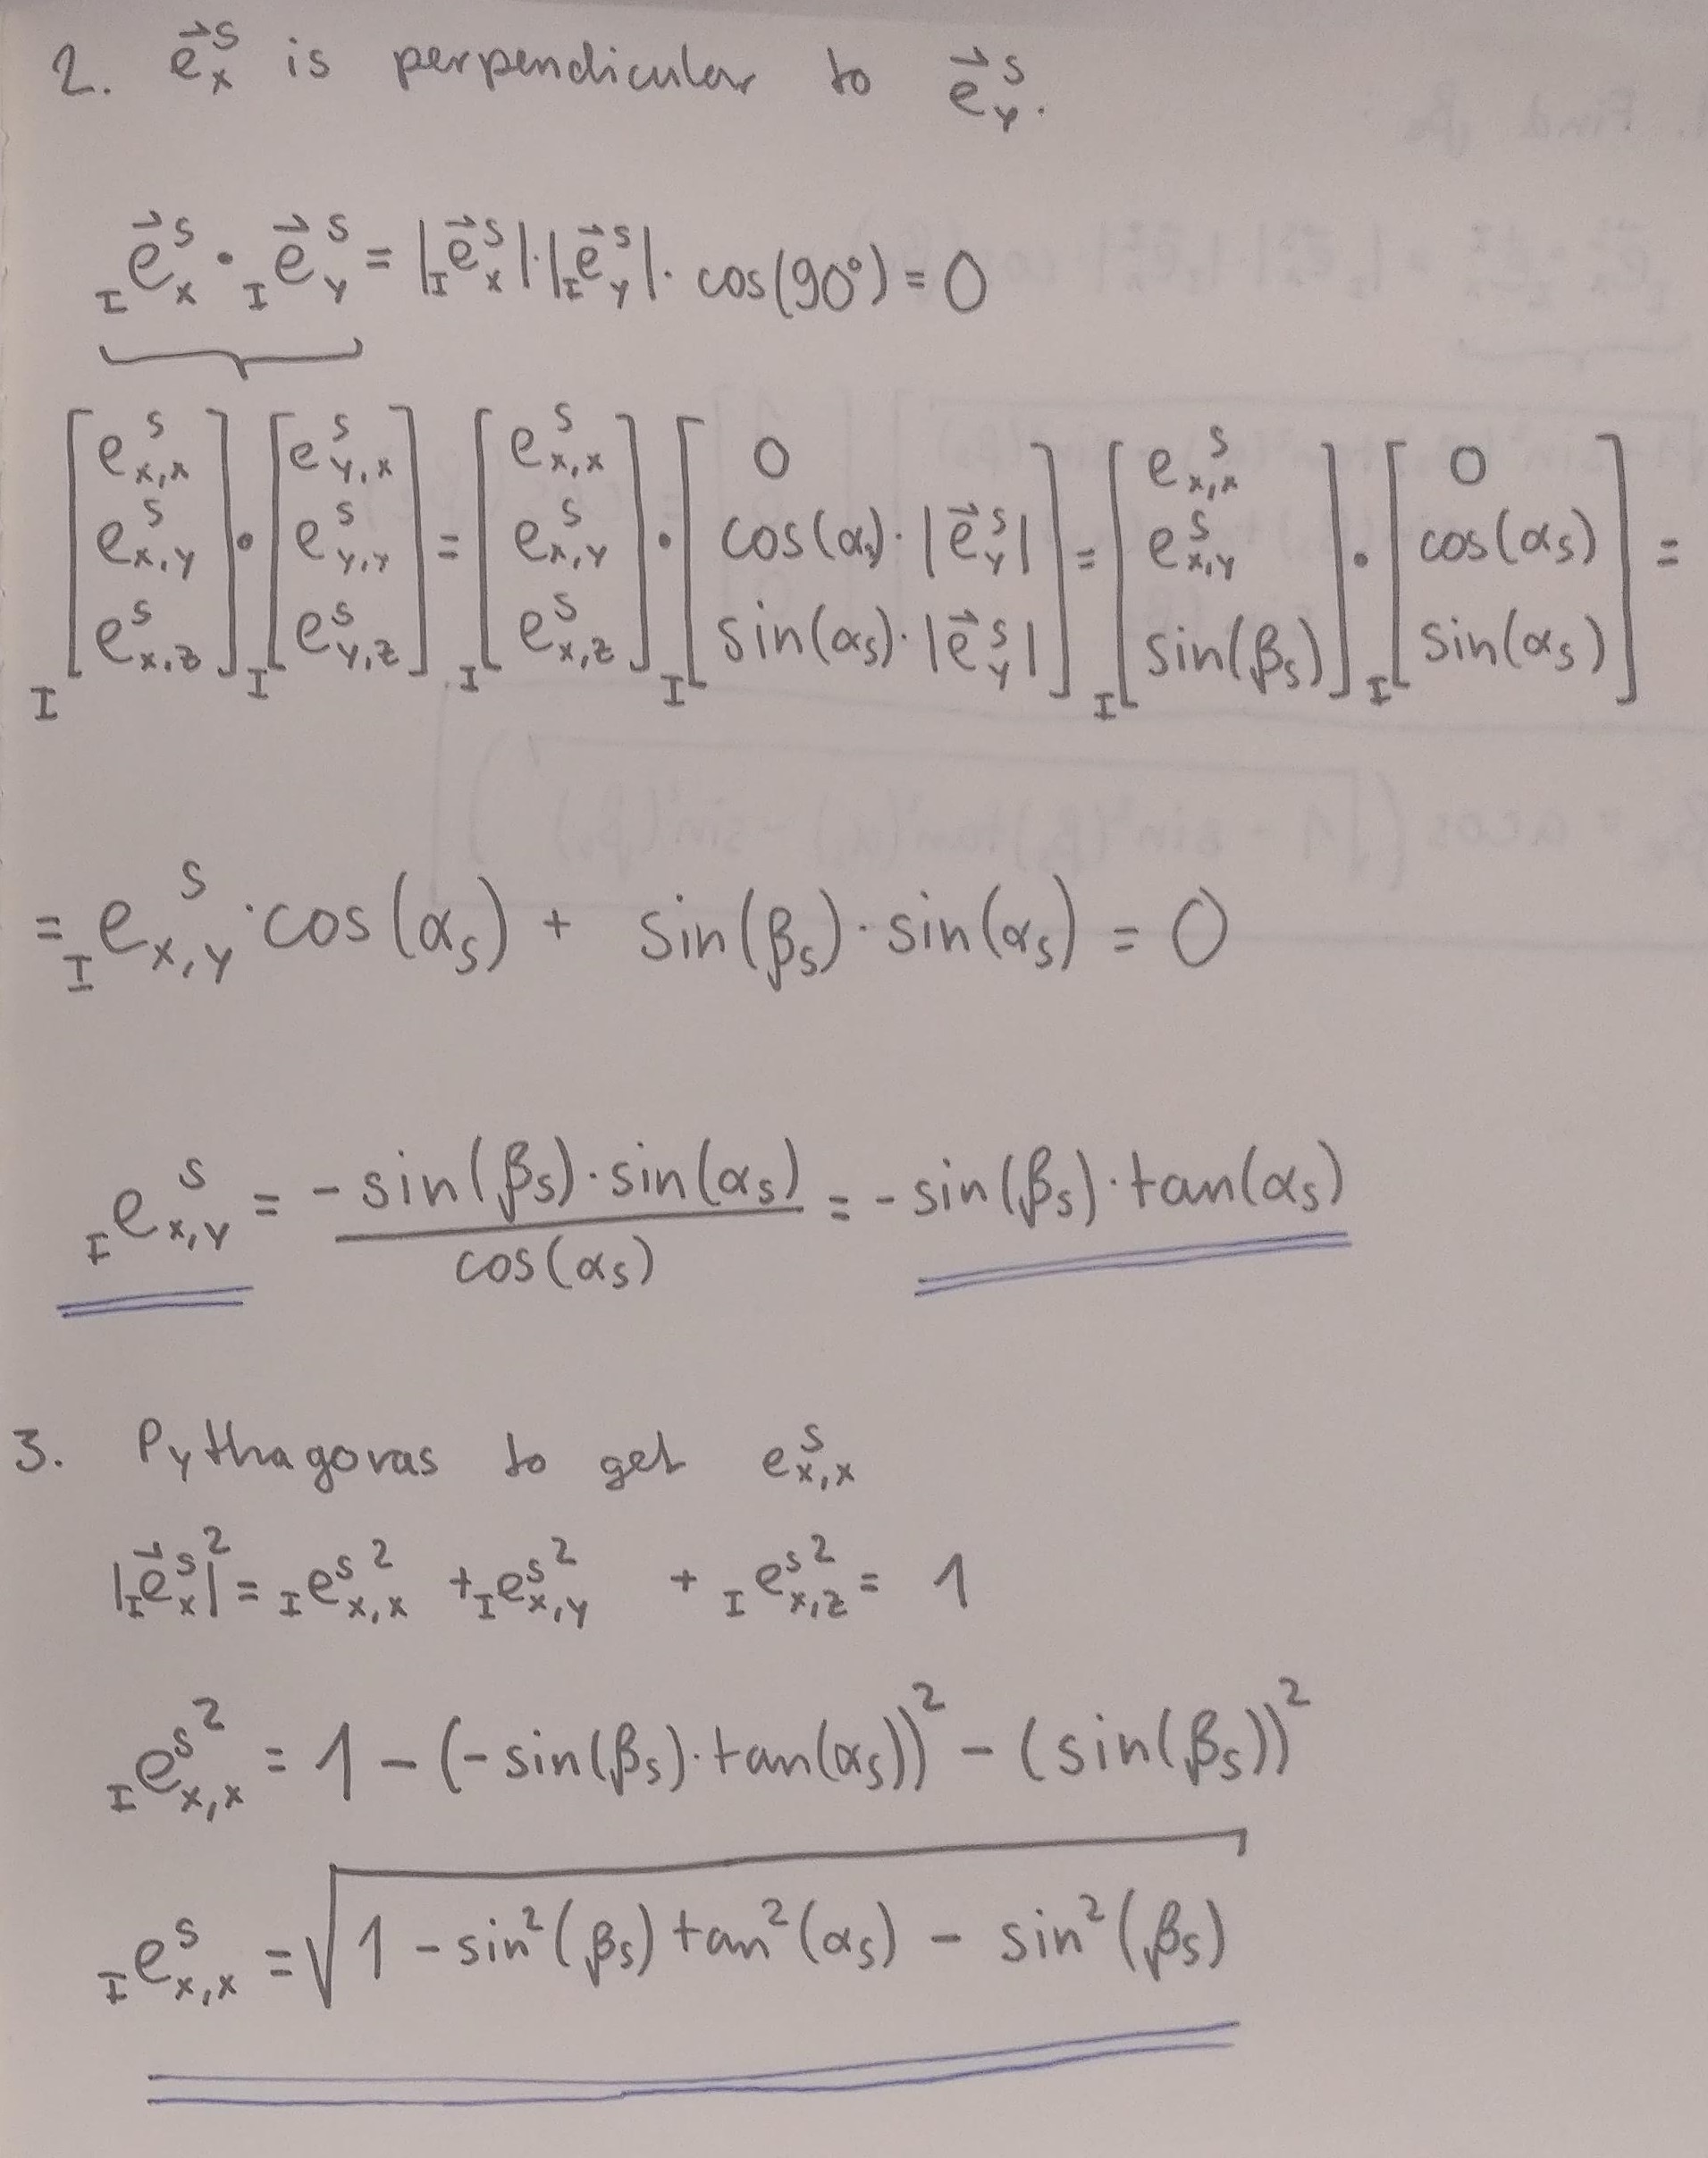 2. $\vec{e}_x^S$ is perpendicular to $\vec{e}_y^S$.
${}_I\vec{e}_x^S \cdot {}_I\vec{e}_y^S = |{}_I\vec{e}_x^S| \cdot |{}_I\vec{e}_y^S| \cdot \cos(90°) = 0$
${}_I\begin{bmatrix} e_{x,x}^S \\ e_{x,y}^S \\ e_{x,z}^S \end{bmatrix} \cdot {}_I\begin{bmatrix} e_{y,x}^S \\ e_{y,y}^S \\ e_{y,z}^S \end{bmatrix} = {}_I\begin{bmatrix} e_{x,x}^S \\ e_{x,y}^S \\ e_{x,z}^S \end{bmatrix} \cdot {}_I\begin{bmatrix} 0 \\ \cos(\alpha_s) \cdot |\vec{e}_y^S| \\ \sin(\alpha_s) \cdot |\vec{e}_y^S| \end{bmatrix} = {}_I\begin{bmatrix} e_{x,x}^S \\ e_{x,y}^S \\ \sin(\beta_s) \end{bmatrix} \cdot {}_I\begin{bmatrix} 0 \\ \cos(\alpha_s) \\ \sin(\alpha_s) \end{bmatrix} =$
$= {}_I e_{x,y}^S \cdot \cos(\alpha_s) + \sin(\beta_s) \cdot \sin(\alpha_s) = 0$
${}_I e_{x,y}^S = \frac{-\sin(\beta_s) \cdot \sin(\alpha_s)}{\cos(\alpha_s)} = -\sin(\beta_s) \cdot \tan(\alpha_s)$
3. Pythagoras to get $e_{x,x}^S$
$|{}_I\vec{e}_x^S|^2 = {}_I e_{x,x}^{S\,2} + {}_I e_{x,y}^{S\,2} + {}_I e_{x,z}^{S\,2} = 1$
${}_I e_{x,x}^{S\,2} = 1 - (-\sin(\beta_s) \cdot \tan(\alpha_s))^2 - (\sin(\beta_s))^2$
${}_I e_{x,x}^S = \sqrt{1 - \sin^2(\beta_s) \tan^2(\alpha_s) - \sin^2(\beta_s)}$